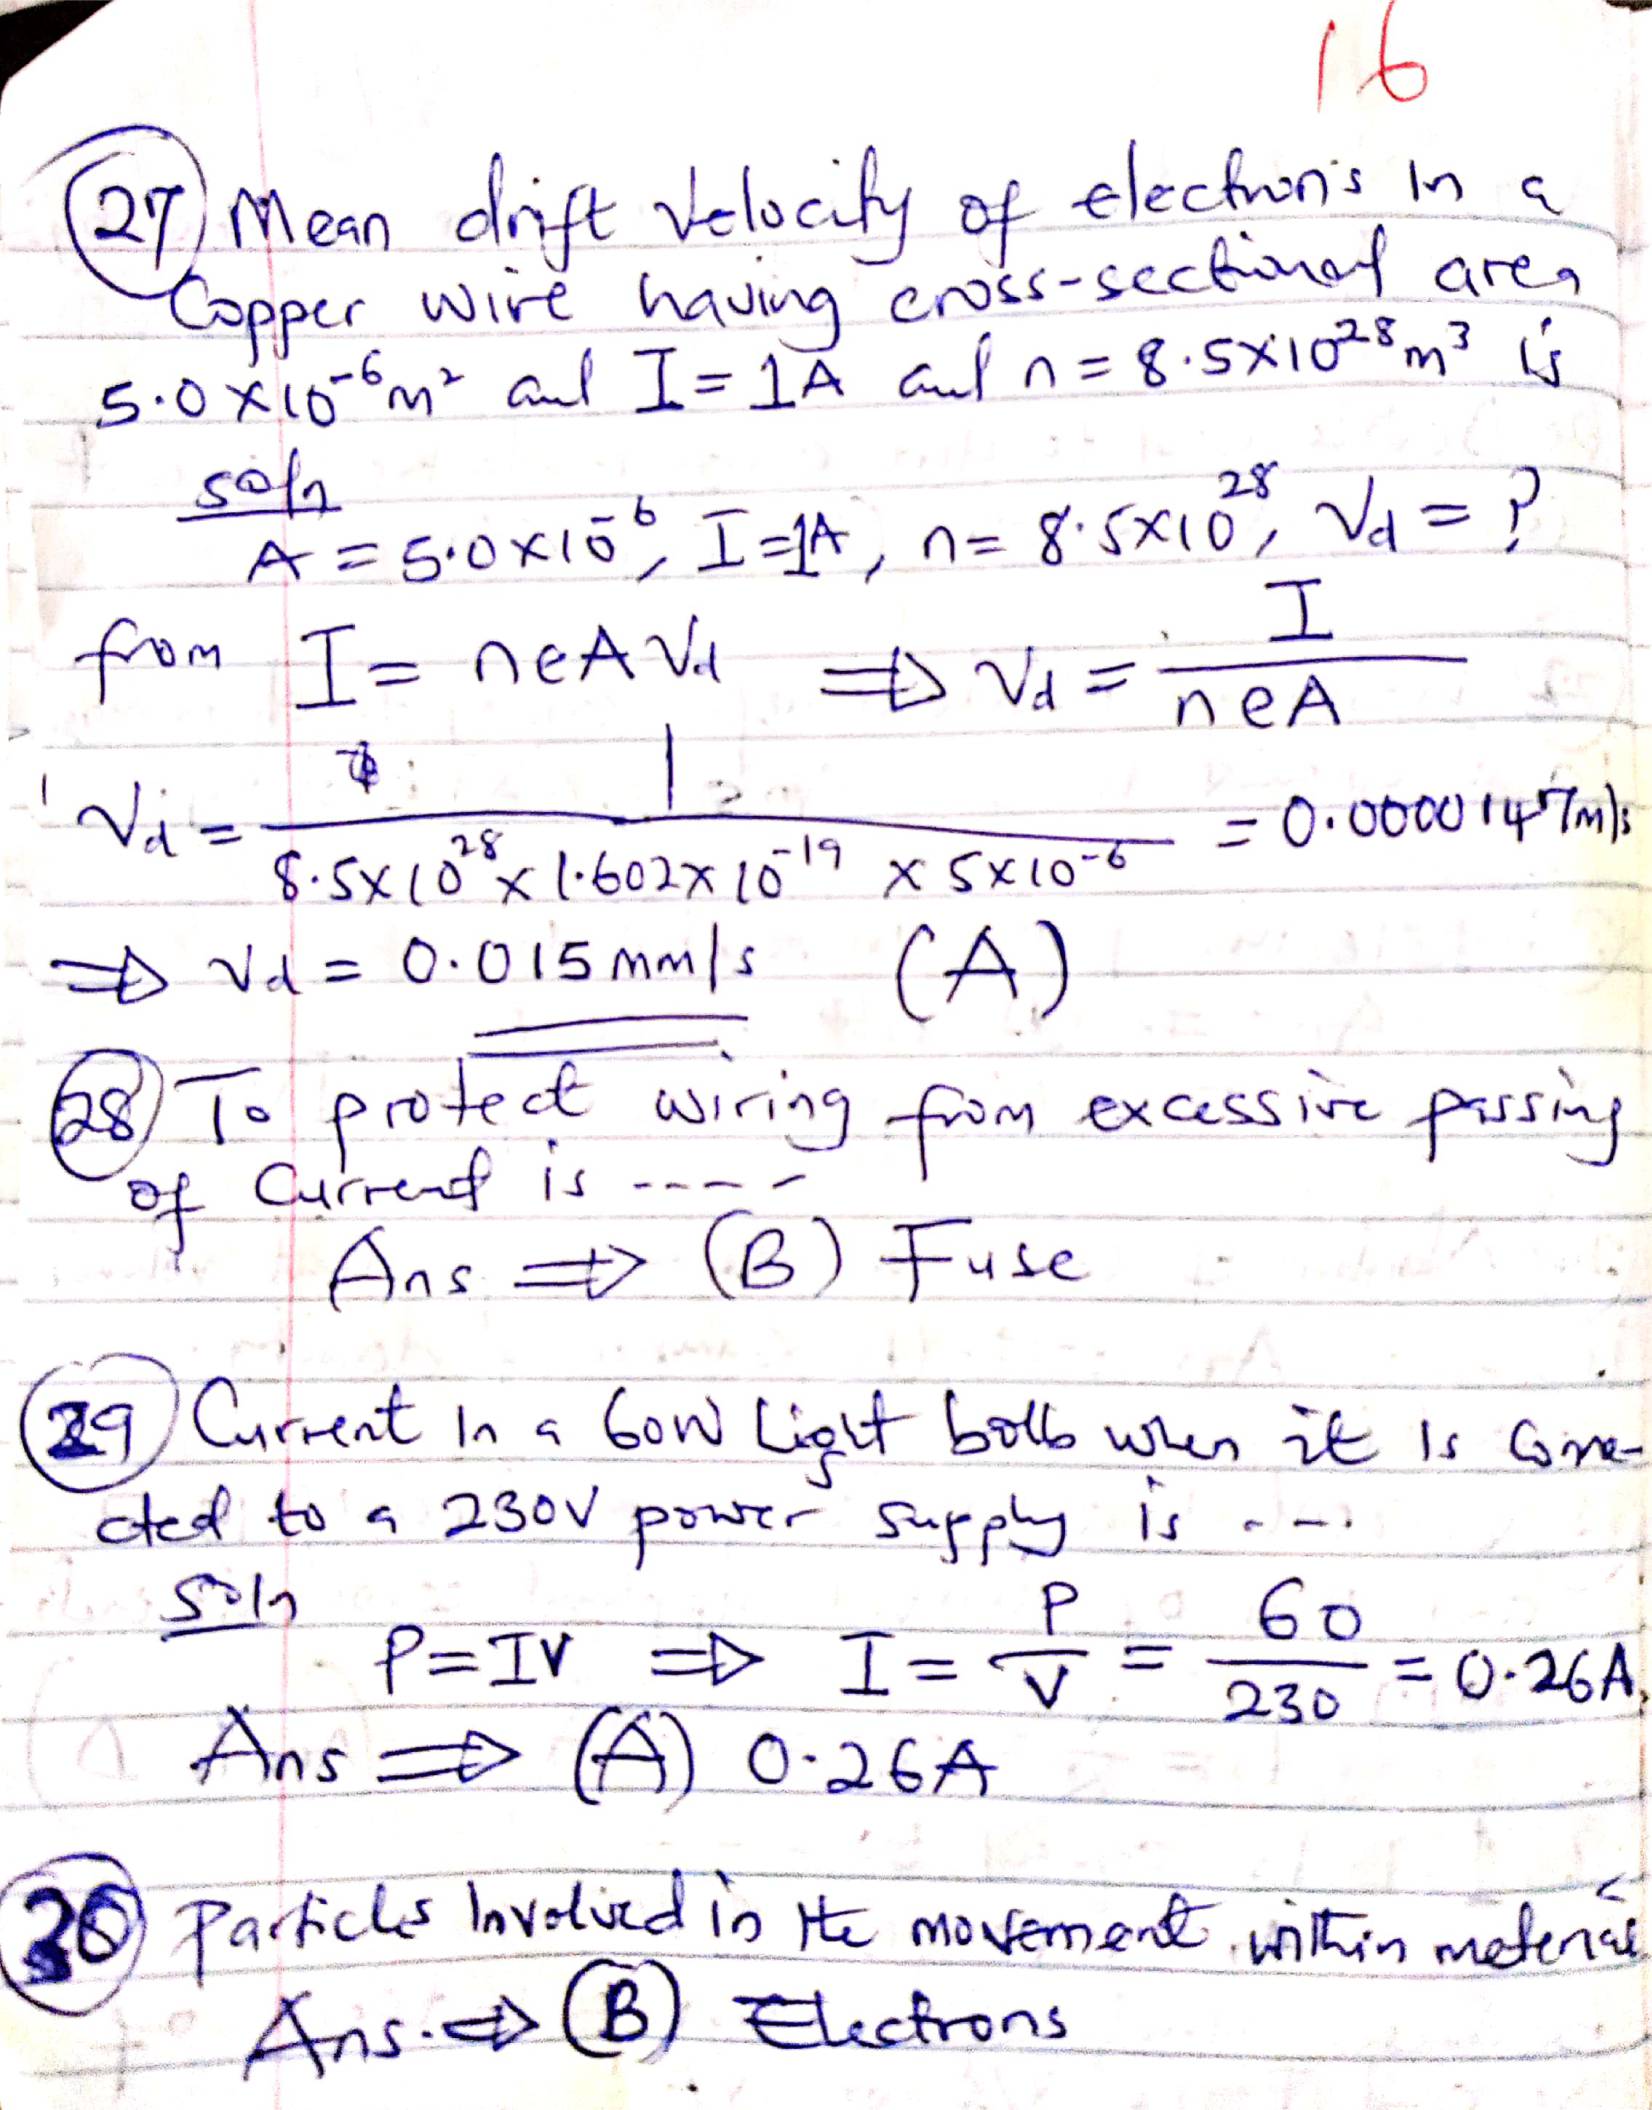 16
(27) Mean drift velocity of electrons in a
Copper wire having cross-sectional area
5.0×10⁻⁶m² and I = 1A and n = 8.5×10²⁸m³ is
soln
A = 5.0×10⁻⁶, I=1A, n= 8.5×10²⁸, Vd = ?
from I = neAVd ⇒ Vd = I/neA
Vd = 1/(8.5×10²⁸ × 1.602×10⁻¹⁹ × 5×10⁻⁶) = 0.0000147m/s
⇒ Vd = 0.015mm/s (A)
(28) To protect wiring from excessive passing
of Current is ----
Ans ⇒ (B) Fuse
(29) Current in a 60W Light bolb when it Is Conne-
cted to a 230V power supply is ...
Soln
P=IV ⇒ I = P/V = 60/230 = 0.26A.
Ans ⇒ (A) 0.26A
(30) Particles Involved in the movement within
Ans. ⇒ (B) Electrons